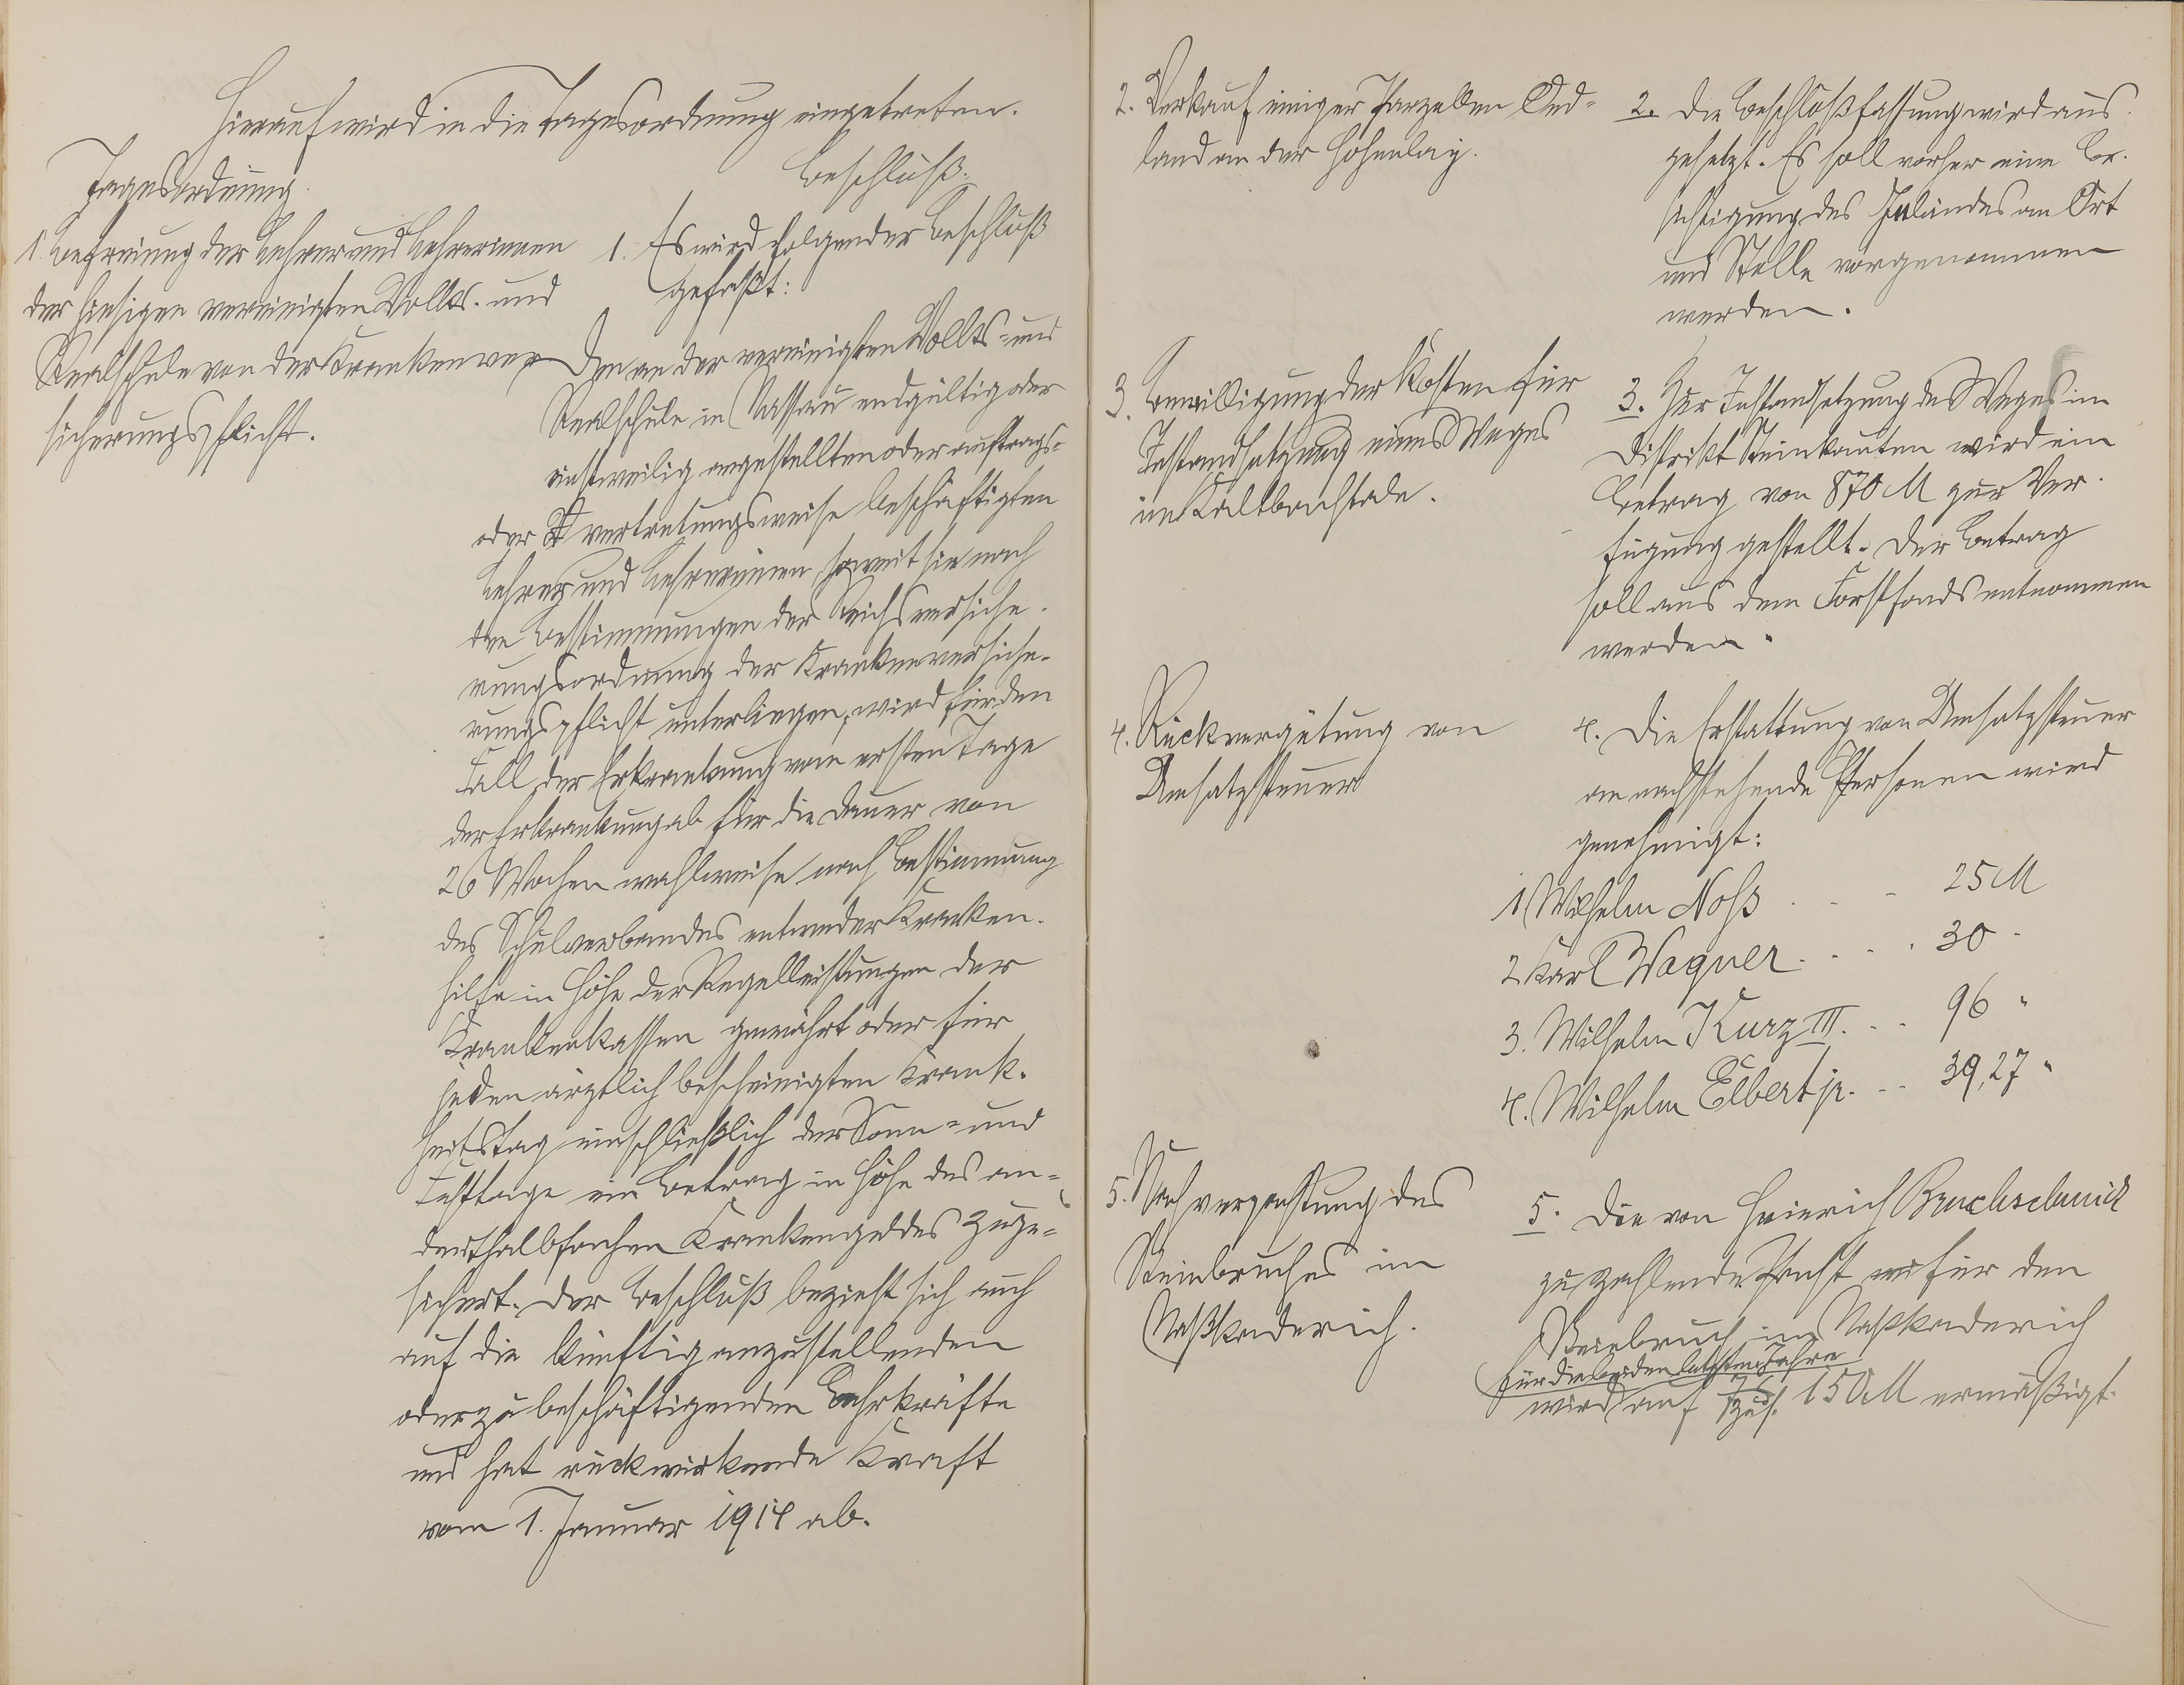 Hierauf wird in die Tagesordnung eingetreten.
Tagesordnung.
1. Befreiung der Lehrer und Lehrerinnen
der hiesigen vereinigten Volks- und
Realschule von der Krankenver-
sicherungspflicht.
Beschluß:
1. Es wird folgender Beschluß
gefaßt:
Den an der vereinigten Volks- und
Realschule in Nassau endgültig oder
einstweilig angestellten oder auftrags-
oder vertretungsweise beschäftigten
Lehrer und Lehrerinnen, soweit sie nach
den Bestimmungen der Reichsversiche-
rungsordnung der Krankenversiche-
rungspflicht unterliegen, wird für den
Fall der Erkrankung vom ersten Tage
der Erkrankung ab für die Dauer von
26 Wochen wahlweise nach Bestimmung
des Schulverbandes entweder Kranken-
hilfe in Höhe der Regelleistungen der
Krankenkassen gewährt oder für
jeden ärztlich bescheinigten Krank-
heitstag einschließlich der Sonn- und
Festtage ein Betrag in Höhe des an-
derthalbfachen Krankengeldes zuge-
sichert. Der Beschluß bezieht sich auch
auf die künftig anzustellenden
oder zu beschäftigenden Lehrkräfte
und hat rückwirkende Kraft
vom 1. Januar 1914 ab.
2. Verkauf einiger Parzellen Oed-
land an der Hohenlay.
2. Die Beschlußfassung wird aus-
gesetzt. Es soll vorher eine Be-
sichtigung des Geländes an Ort
und Stelle vorgenommen
werden.
3. Bewilligung der Kosten für
Instandsetzung eines Weges
im Kaltbachtale.
3. Zur Instandsetzung des Weges im
Distrikt Steinkauten wird ein
Betrag von 870 M zur Ver-
fügung gestellt. Der Betrag
soll aus dem Forstfonds entnommen
werden.
4. Rückvergütung von
Umsatzsteuer
4. Die Erstattung von Umsatzsteuer
an nachstehende Personen wird
genehmigt:
1 Wilhelm Noß . - - 25 M
2 Karl Wagner . . . . 30 "
3. Wilhelm Kurz III. . . 96 "
4. Wilhelm Elbert jr. . . 39,27 "
5. Nachverpachtung des
Steinbruches im
Naßkaderich.
5. Die von Heinrich Bruchschmidt
zu zahlende Pacht für den
Steinbruch im Naßkaderich
für die beiden letzten Jahre
wird auf zus. 150 M ermäßigt.